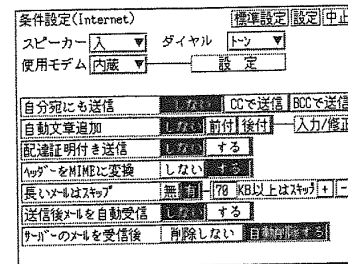 条件設定(Internet) 標準設定 設定 中止
スピーカー 入 ▼ ダイヤル トーン ▼
使用モデム 内蔵 ▼ 設 定
自分宛にも送信 しない CCで送信 BCCで送信
自動文章追加 しない 前付 後付 入力/修正
配達証明付き送信 しない する
ヘッダーをMIMEに変換 しない する
長いメールはスキップ 無 有 - 70 KB以上はスキップ + -
送信後メールを自動受信 しない する
サーバーのメールを受信後 削除しない 自動削除する